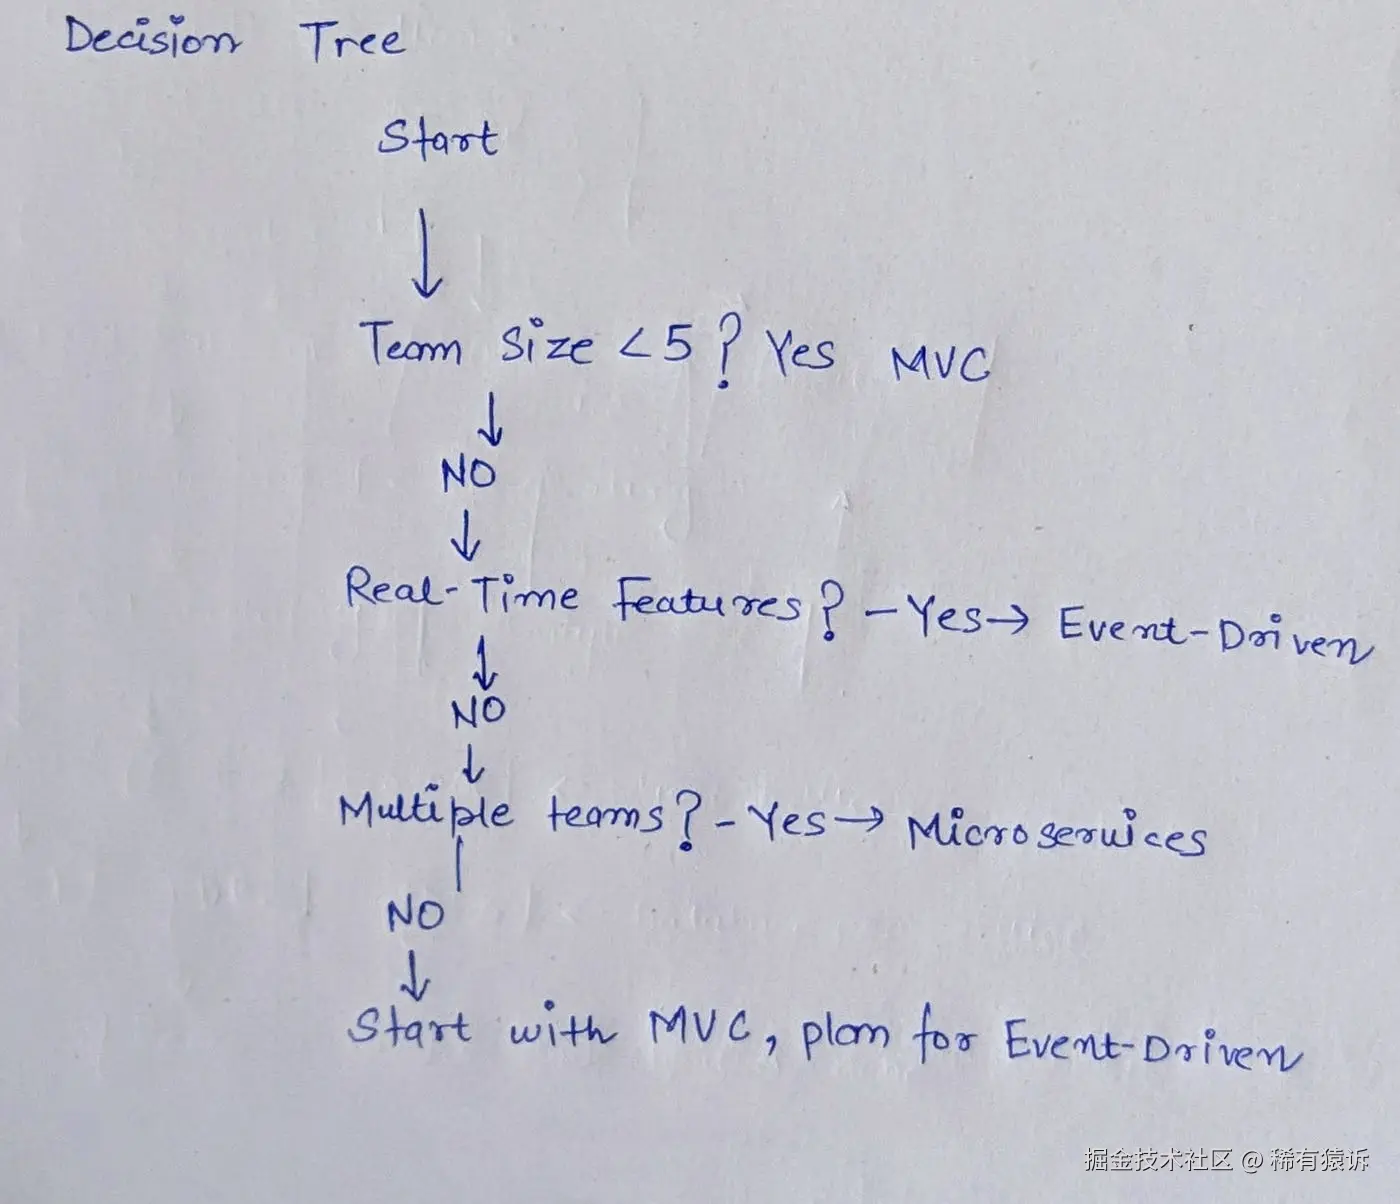 Decision Tree
Start
Team Size <5? Yes MVC
NO
Real-Time Features? - Yes → Event-Driven
NO
Multiple teams? - Yes → Microservices
NO
Start with MVC, plan for Event-Driven
掘金技术社区 @ 稀有猿诉